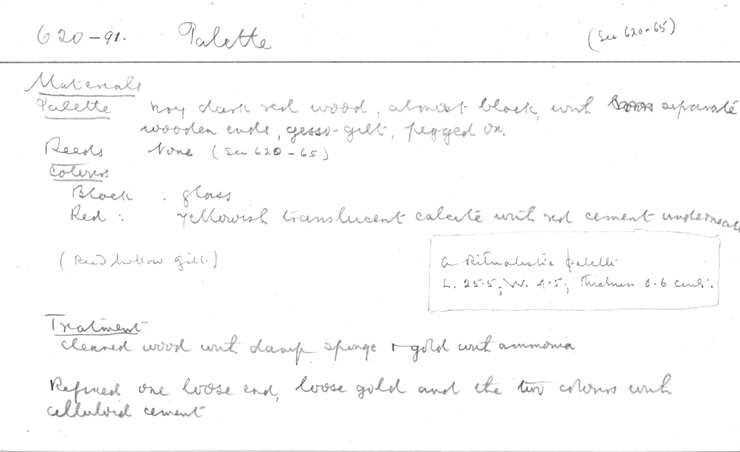 620-91. Palette (See 620-65)
Materials
Palette Very dark red wood, almost black, with separate
wooden ends, gesso-gilt, pegged on.
Reeds None (See 620-65)
Colours
Black : glass
Red : Yellowish translucent calcite with red cement underneath
(Reed hollow gilt.)
A Ritualistic palette
L. 25.5; W. 4.5; Thickness 0.6 cents.
Treatment
Cleaned wood with damp sponge + gold with ammonia
Refixed one loose end, loose gold and the two colours with
celluloid cement